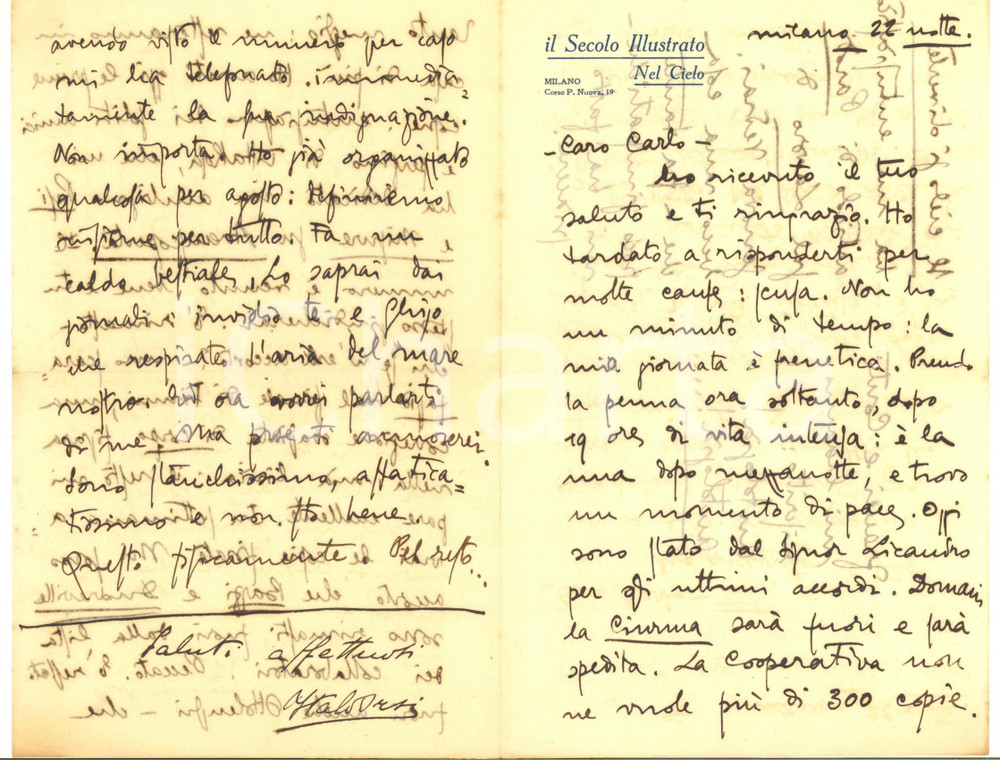 il Secolo Illustrato
Nel Cielo
MILANO
Corso P. Nuova, 19
Milano 22 notte.
- Caro Carlo -
ho ricevuto il tuo
saluto e ti ringrazio. Ho
tardato a risponderti per
molte cause: scusa. Non ho
un minuto di tempo: la
mia giornata è frenetica. Prendo
la penna ora soltanto, dopo
19 ore di vita intensa: è la
una dopo mezzanotte, e trovo
un momento di pace. Oggi
sono stato dal Signor Licandro
per gli ultimi accordi. Domani
la Ciurma sarà fuori e sarà
spedita. La Cooperativa non
ne vuole più di 300 copie.
avendo visto il numero per caso
mi ha telefonato immedia=
tamente la sua indignazione.
Non importa. Ho già organizzato
qualcosa per agosto: definiremo
insieme per tutto. Fa un
caldo bestiale. Lo saprai dai
giornali: invidio te e
che respirate l'aria del mare
nostro. ora vorrei parlarti
di me. Ma
Sono stanchissimo, affatica=
tissimo e non sto bene.
Questo fisicamente. Pel resto...
Saluti affettuosi
Italo Orsi